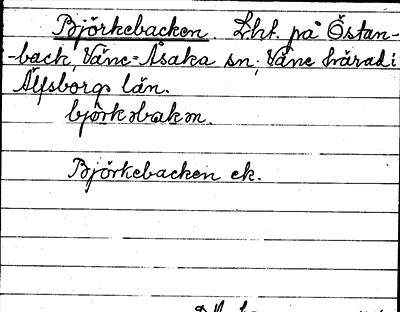 Björkebacken. Lht. på Östan-
-back, Väne-Åsaka sn, Väne härad i
Älfsborgs län.
björkəbakən.
Björkebacken ek.